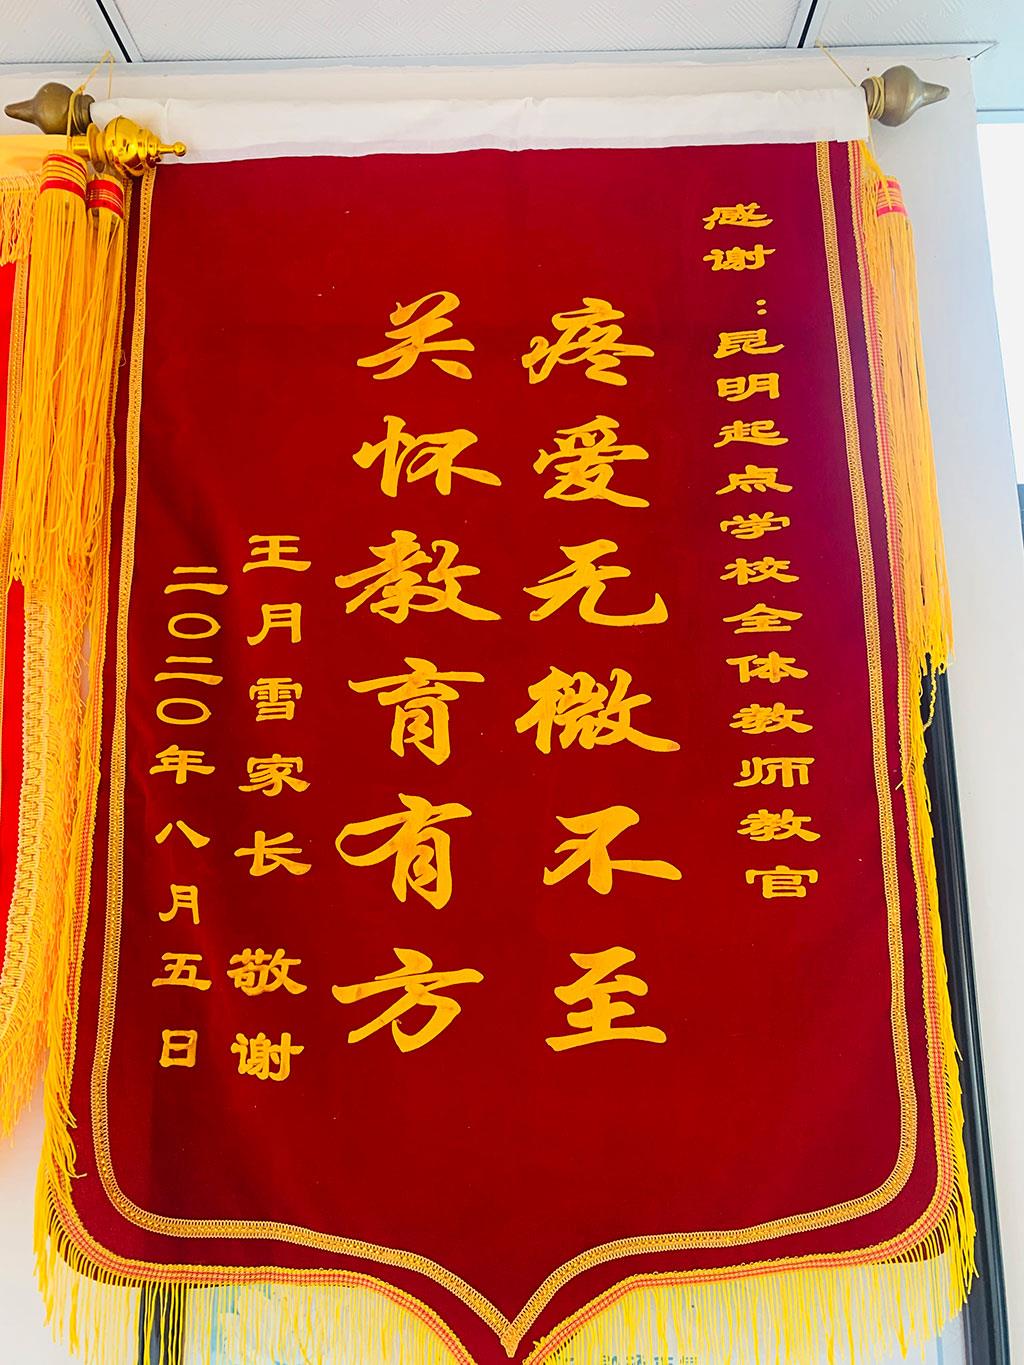 感谢：昆明起点学校全体教师教官
疼爱无微不至
关怀教育有方
王月雪家长 敬谢
二〇二〇年八月五日